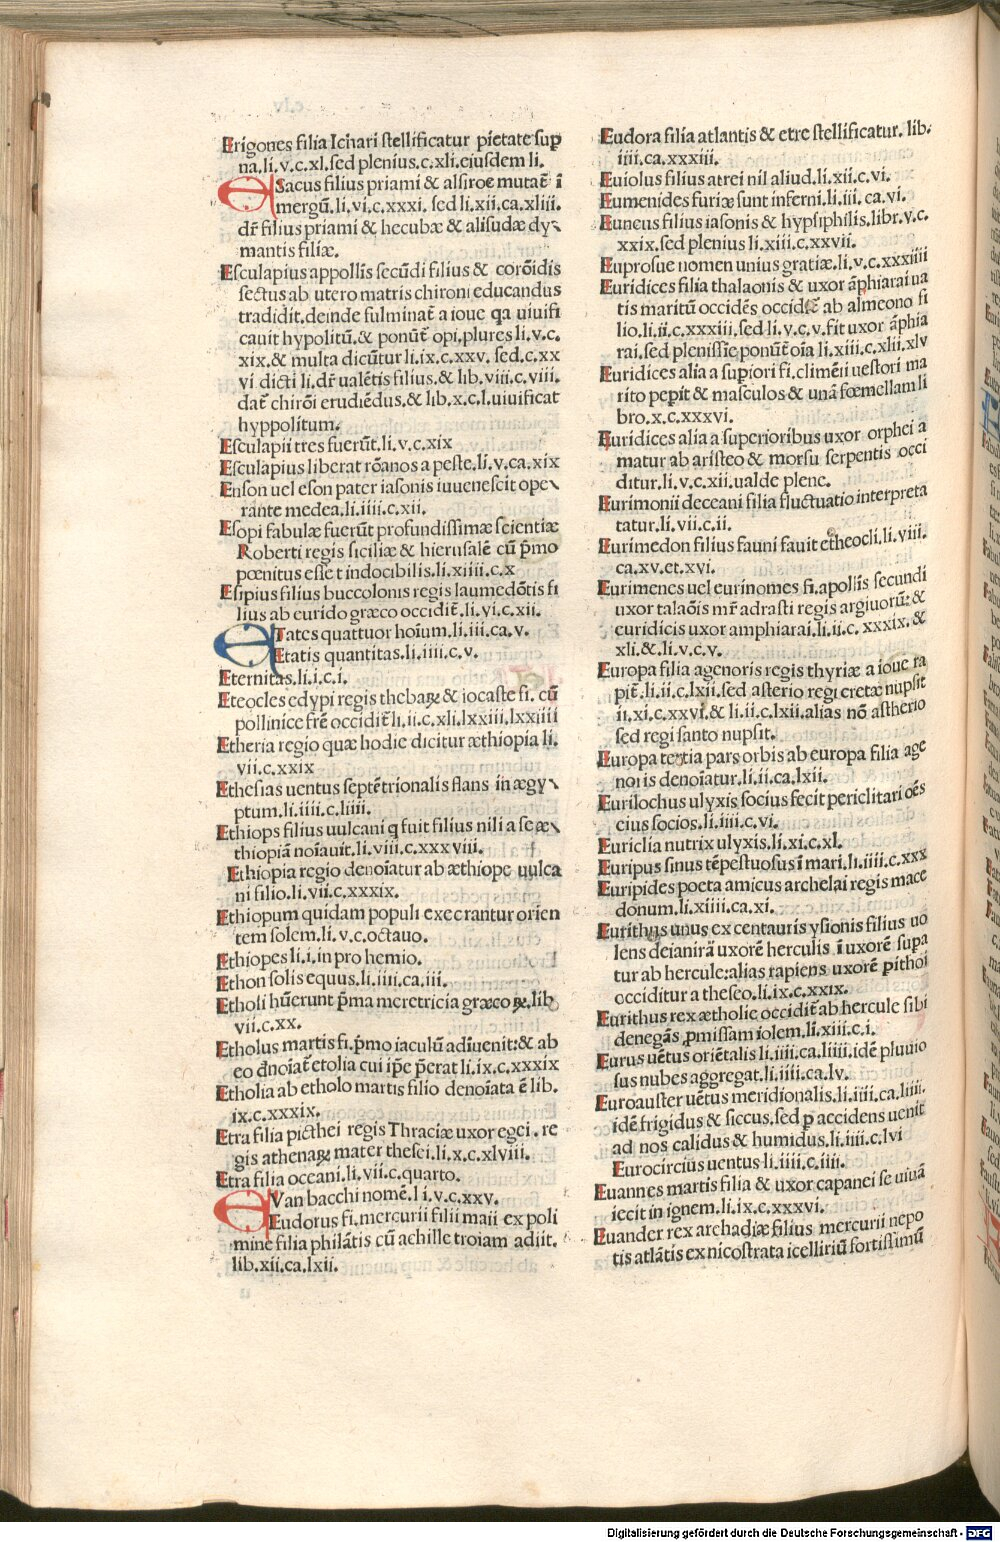 Erigones filia Icħari stellificatur pietate sup
na.li.v.c.xl.sed plenius.c.xli.eiusdem li.
ESacus filius priami & alsiroe mutat̃ ĩ
mergũ.li.vi.c.xxxi. sed li.xii.ca.xliii.
dr̃ filius priami & hecubæ & alisudæ dy
mantis filiæ.
Esculapius appollis secũdi filius & corõidis
sectus ab utero matris chironi educandus
tradidit.deinde fulminat̃ a ioue qa uiuifi
cauit hypolitũ.& ponũt̃ opi.plures li.v.c.
xix.& multa dicũtur li.ix.c.xxv. sed.c.xx
vi dicti li.dr̃ ualẽtis filius.& lib.viii.c.viii.
dat̃ chirõi erudiẽdus.& lib.x.c.l.uiuificat
hyppolitum.
Esculapii tres fuerũt.li.v.c.xix
Esculapius liberat rõanos a peste.li.v.ca.xix
Enson uel eson pater iasonis iuuenescit ope
rante medea.li.iiii.c.xii.
Esopi fabulæ fuerũt profundissimæ scientiæ
Roberti regis siciliæ & hierusalẽ cũ p̃mo
pœnitus esse t indocibilis.li.xiiii.c.x
Esipius filius buccolonis regis laumedõtis fi
lius ab eurido græco occidit̃.li.vi.c.xii.
ETates quattuor hoĩum.li.iii.ca.v.
Etatis quantitas.li.iiii.c.v.
Eternitas.li.i.c.i.
Eteocles edypi regis thebaꝝ & iocaste fi. cũ
pollinice frẽ occidit̃ li.ii.c.xli.lxxiii.lxxiiii
Etheria regio quæ hodie dicitur æthiopia li.
vii.c.xxix
Ethesias uentus septẽtrionalis flans in ægy
ptum.li.iiii.c.liiii.
Ethiops filius uulcani q fuit filius nili a se æ
thiopiã noĩauit.li.viii.c.xxx viii.
Ethiopia regio denoĩatur ab æthiope uulca
ni filio.li.vii.c.xxxix.
Ethiopum quidam populi execrantur orien
tem solem.li.v.c.octauo.
Ethiopes li.i.in pro hemio.
Ethon solis equus.li.iiii.ca.iii.
Etholi hũerunt p̃ma meretricia græcoꝝ.lib
vii.c.xx.
Etholus martis fi.p̃mo iaculũ adĩuenit:& ab
eo d̃noĩat̃ etolia cui ip̃e p̃erat li.ix.c.xxxix
Etholia ab etholo martis filio denoĩata ẽ lib.
ix.c.xxxix.
Etra filia picthei regis Thraciæ uxor egei.re
gis athenaꝝ mater thesei.li.x.c.xlviii.
Etra filia oceani.li.vii.c.quarto.
EVan bacchi nomẽ.l i.v.c.xxv.
Eudorus fi.mercurii filii maii ex poli
mine filia philãtis cũ achille troiam adiit.
lib.xii.ca.lxii.
Eudora filia atlantis & etre stellificatur. lib.
iiii.ca.xxxiii.
Euiolus filius atrei nil aliud.li.xii.c.vi.
Eumenides furiæ sunt inferni.li.iii.ca.vi.
Euneus filius iasonis & hypsiphilis.libr.v.c.
xxix.sed plenius li.xiii.c.xxvii.
Euprosue nomen unius gratiæ.li.v.c.xxxiiii
Euridices filia thalaonis & uxor ãphiarai ua
tis maritũ occidẽs occidit̃ ab almeono fi
lio.li.ii.c.xxxiii.sed li.v.c.v.fit uxor ãphia
rai.sed plenissĩe ponũt̃ oĩa li.xiii.c.xlii.xlv
Euridices alia a supiori fi.climẽii uestori ma
rito pepit & masculos & unã fœmellam li
bro.x.c.xxxvi.
Euridices alia a superioribus uxor orphei a
matur ab aristeo & morsu serpentis occi
ditur.li.v.c.xii.ualde plene.
Eurimonii deceani filia fluctuatio interpreta
tatur.li.vii.c.ii.
Eurimedon filius fauni fauit etheocli.li.viii.
ca.xv.et.xvi.
Eurimenes uel eurinomes fi.apollis secundi
uxor talaõis mr̃ adrasti regis argiuorũ:&
euridicis uxor amphiarai.li.ii.c. xxxix.&
xli.& li.v.c.v.
Europa filia agenoris regis thyriæ a ioue ra
pit̃.li.ii.c.lxii.sed asterio regi cretæ nupsit
ii.xi.c.xxvi.& li.ii.c.lxii.alias nõ astherio
sed regi santo nupsit.
Europa tertia pars orbis ab europa filia age
noris denoĩatur.li.ii.ca.lxii.
Eurilochus ulyxis socius fecit periclitari oẽs
eius socios.li.iiii.c.vi.
Euriclia nutrix ulyxis.li.xi.c.xl.
Euripus sinus tẽpestuosus ĩ mari.li.iiii.c.xxx
Euripides poeta amicus archelai regis mace
donum.li.xiiii.ca.xi.
Eurithus unus ex centauris ysionis filius uo
lens deianirã uxorẽ herculis ĩ uxorẽ supa
tur ab hercule:alias rapiens uxorẽ pithoi
occiditur a theseo.li.ix.c.xxix.
Eurithus rex ætholie occidit̃ ab hercule sibi
denegãs ꝓmissam iolem.li.xiii.c.i.
Eurus uẽtus oriẽtalis li.iiii.ca.liiii.idẽ pluuio
sus nubes aggregat.li.iiii.ca.lv.
Euroauster uẽtus meridionalis.li.iiii.ca.liiii.
idẽ frigidus & siccus.sed ꝑ accidens uenit
ad nos calidus & humidus.li.iiii.c.lvi
Eurocircius uentus li.iiii.c.iiii.
Euannes martis filia & uxor capanei se uiuã
iecit in ignem.li.ix.c.xxxvi.
Euander rex archadiæ filius mercurii nepo
tis atlãtis ex nicostrata icelliriũ fortissimũ
Digitalisierung gefördert durch die Deutsche Forschungsgemeinschaft - DFG